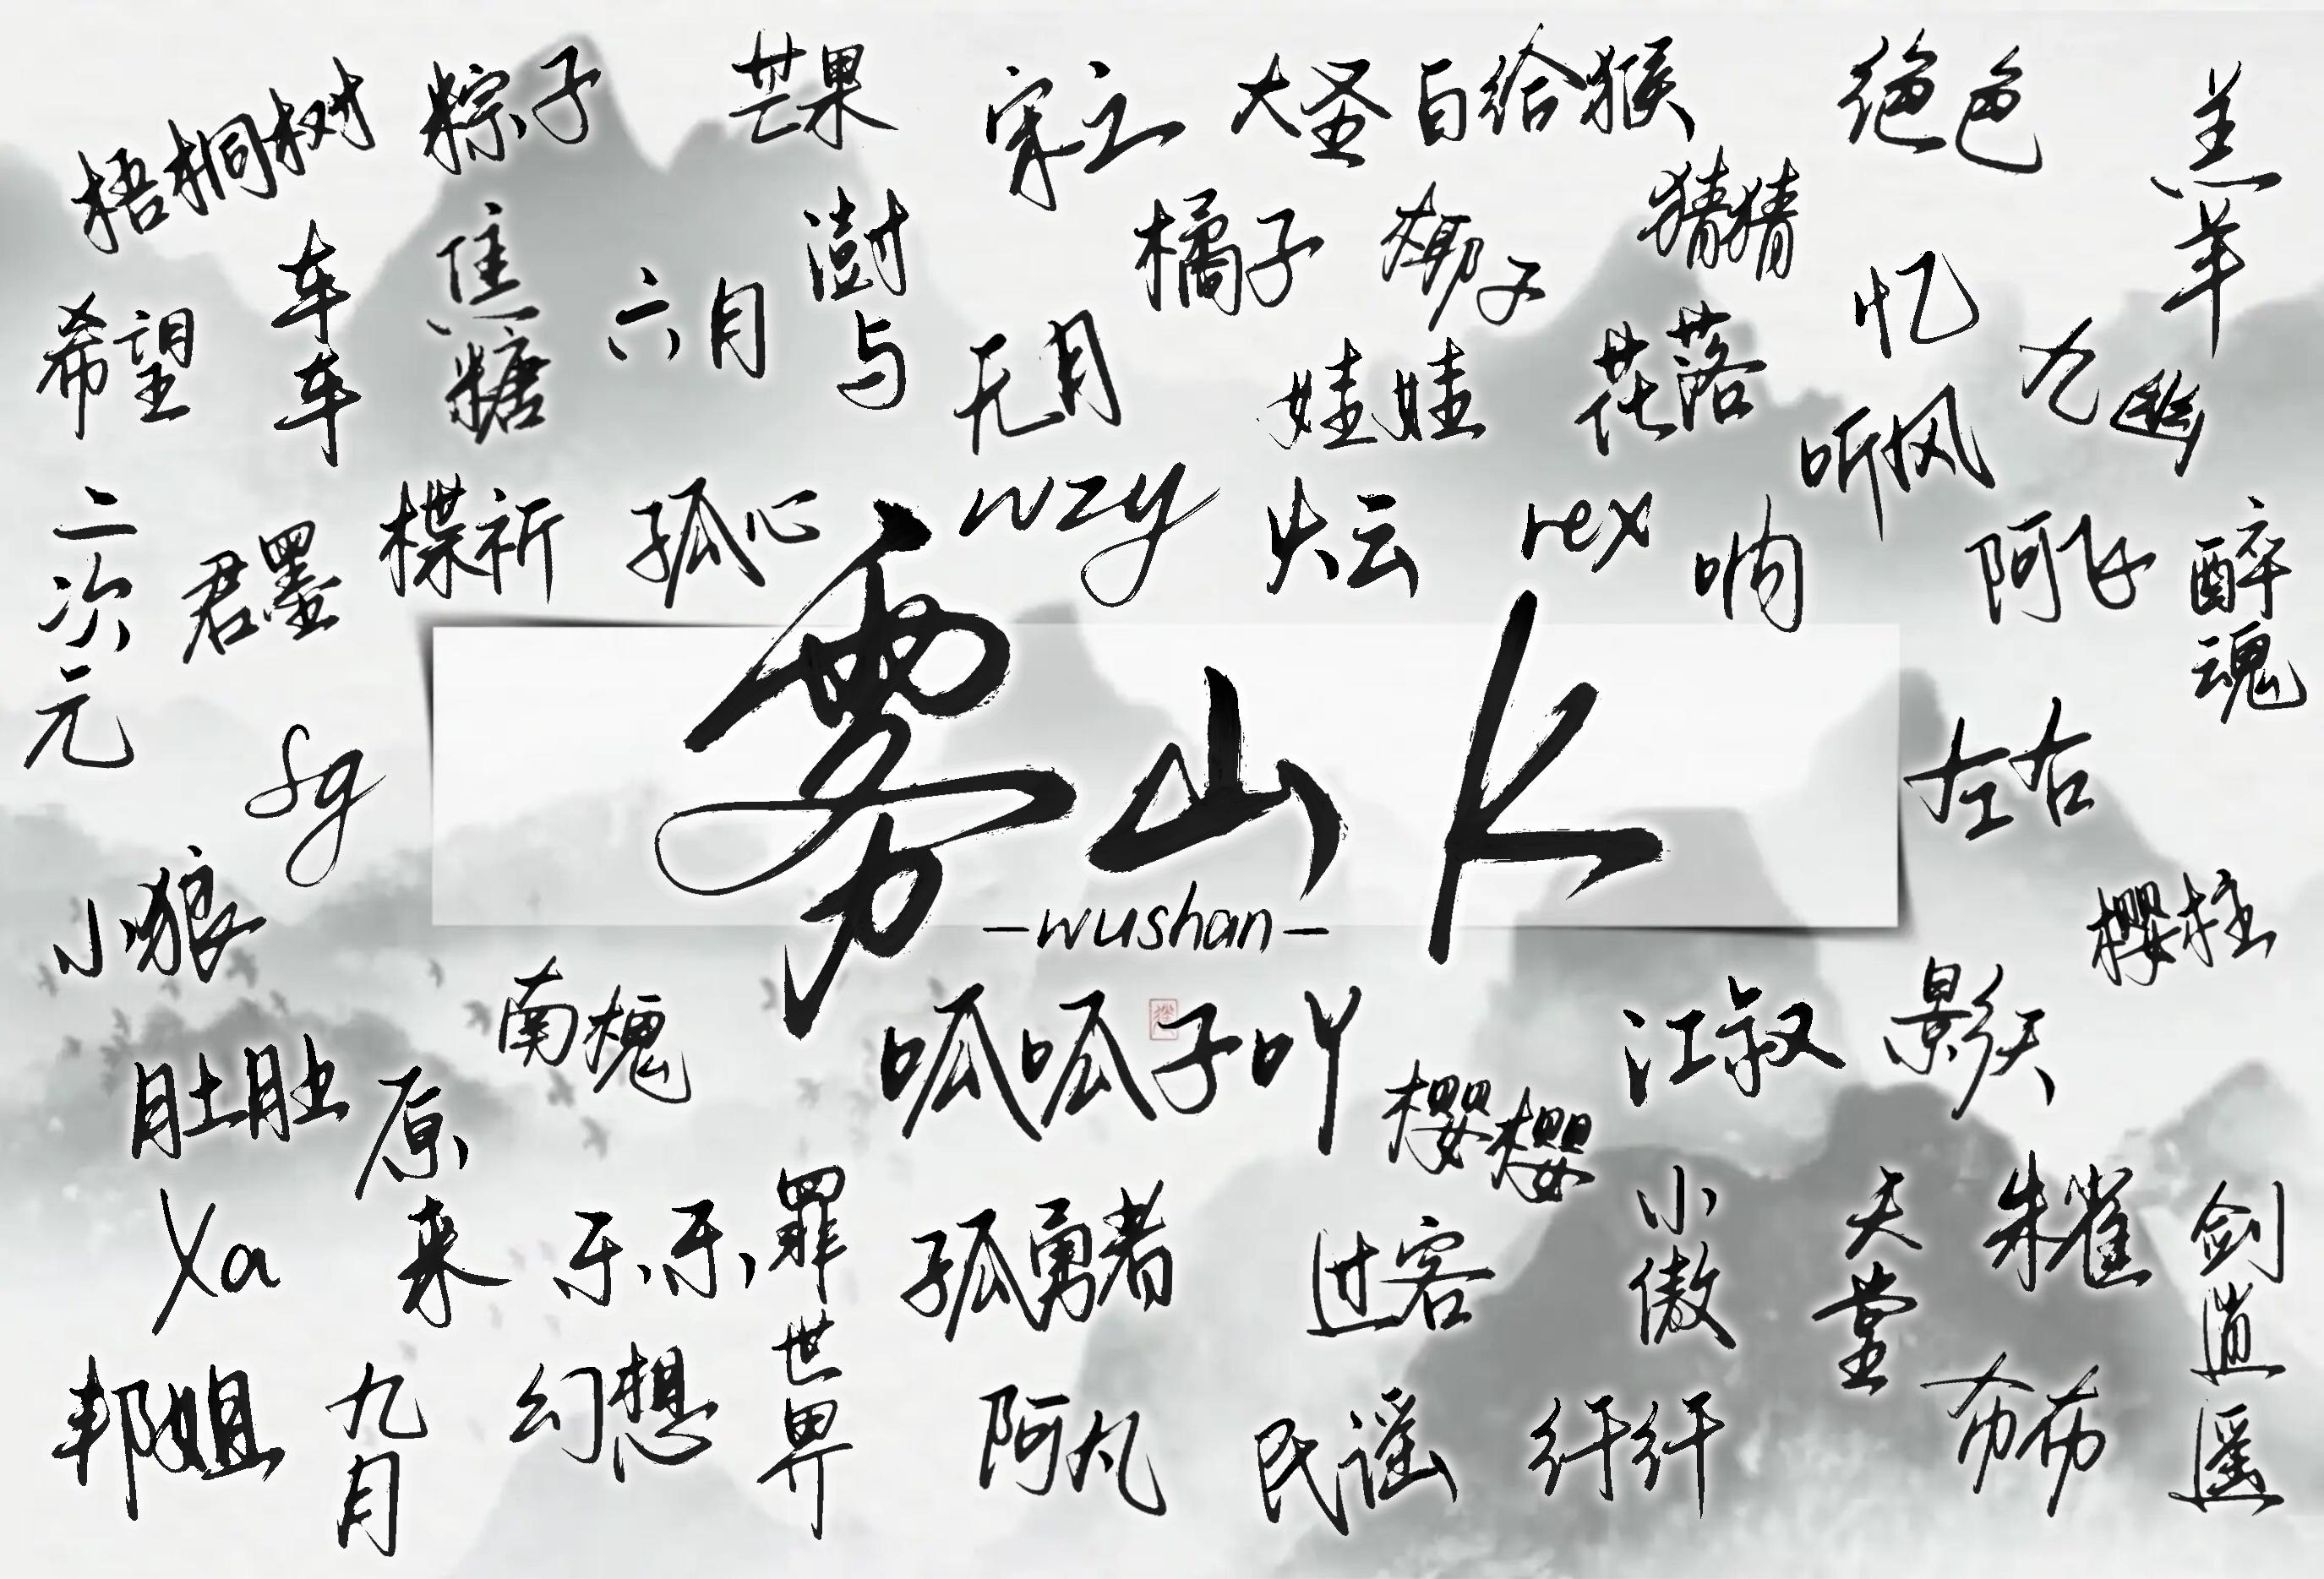 梧桐树
粽子
芒果
宋立
大圣
白给猴
绝色
羊
橘子
椰子
猜猜
车车
焦糖
六月
澍与
忆
希望
无月
娃娃
花落
九幽
听风
二次元
君墨
楪祈
孤心
wzy
rex
响
阿飞
醉魂
雾山K
-wushan-
sg
左右
小狼
樱柱
南槐
呱呱子吖
江叔
影天
肚肚
原来
樱樱
Xa
乐乐
罪世界
孤勇者
过客
小傲
天堂
朱雀
剑逍遥
邦姐
九月
幻想
阿凡
民谣
纤纤
布布